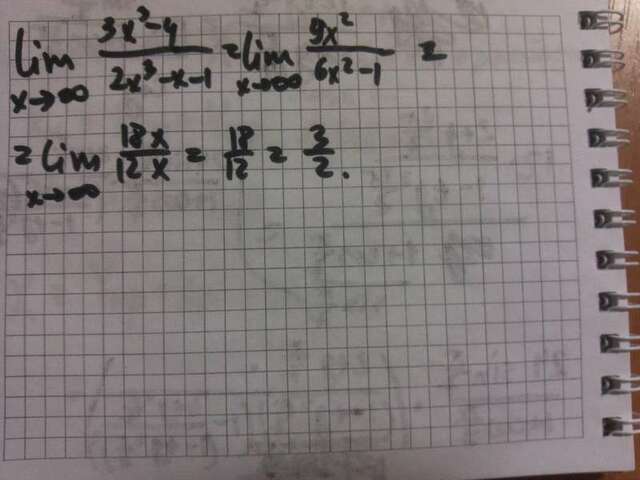 lim x→∞ (3x³-4)/(2x³-x-1) = lim x→∞ 9x²/(6x²-1) =
= lim x→∞ 18x/12x = 18/12 = 3/2.